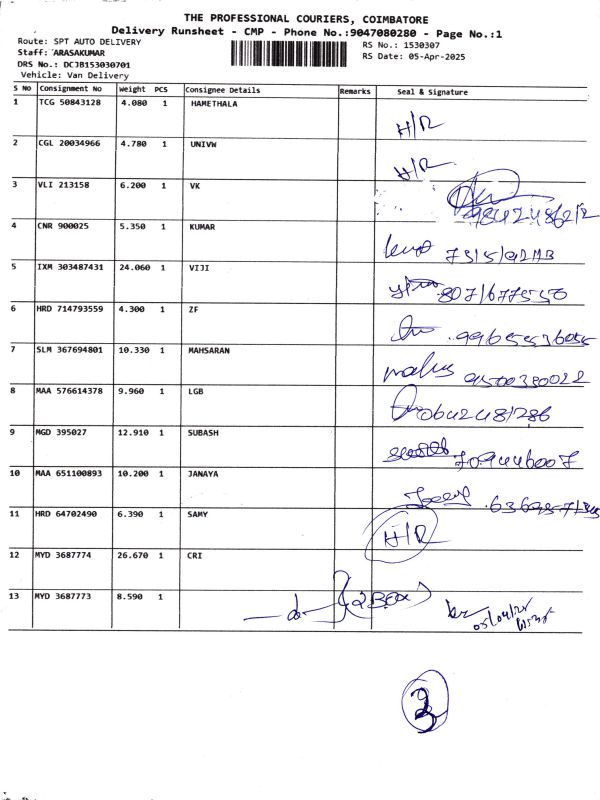 THE PROFESSIONAL COURIERS, COIMBATORE
Delivery Runsheet - CMP - Phone No.:9047080280 - Page No.:1
Route: SPT AUTO DELIVERY
RS No.: 1530307
Staff: ARASAKUMAR
RS Date: 05-Apr-2025
DRS No.: DCJB153030701
Vehicle: Van Delivery
S No Consignment No Weight PCS Consignee Details Remarks Seal & Signature
1 TCG 50843128 4.080 1 HAMETHALA
H/R
2 CGL 20034966 4.780 1 UNIVW
H/R
3 VLI 213158 6.200 1 VK
4 CNR 900025 5.350 1 KUMAR
5 IXM 303487431 24.060 1 VIJI
8071677550
6 HRD 714793559 4.300 1 ZF
7 SLM 367694801 10.330 1 MAHSARAN
9500380022
8 MAA 576614378 9.960 1 LGB
9 MGD 395027 12.910 1 SUBASH
709446007
10 MAA 651100893 10.200 1 JANAYA
11 HRD 64702490 6.390 1 SAMY
H/R
12 MYD 3687774 26.670 1 CRI
13 MYD 3687773 8.590 1
2 Box
05/04/25